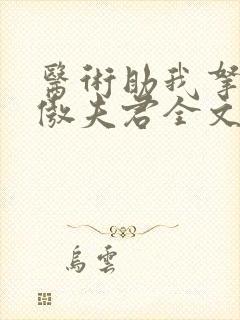 醫術助我
傲夫君全文
烏雲